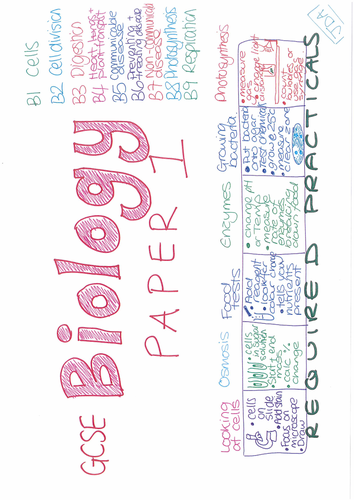 GCSE
Biology
PAPER 1
B1 Cells
B2 Cell division
B3 Digestion
B4 Heart, lungs +
plant transport
B5 Communicable
disease
B6 Prevent +
treating disease
B7 Non-communicable
disease
B8 Photosynthesis
B9 Respiration
Looking
at cells
• cells
on
slide
• Add stain
• Focus on
microscope
• Draw
Osmosis
• cells
in sugar
solution
• Start + end
mass
• calc %
change
Food
tests
• Add
reagent
• look for
colour change
• tells you
nutrients
present
Enzymes
• change pH
or Temp
• measure
rate of
enzymes
breaking
down food
Growing
bacteria
• Put bacteria
onto agar
• test chemical
• grow @ 25°C
• measure
clear zone
Photosynthesis
• measure
gas
• change light
distance
• count
bubbles or
use syringe
REQUIRED PRACTICALS
JDA